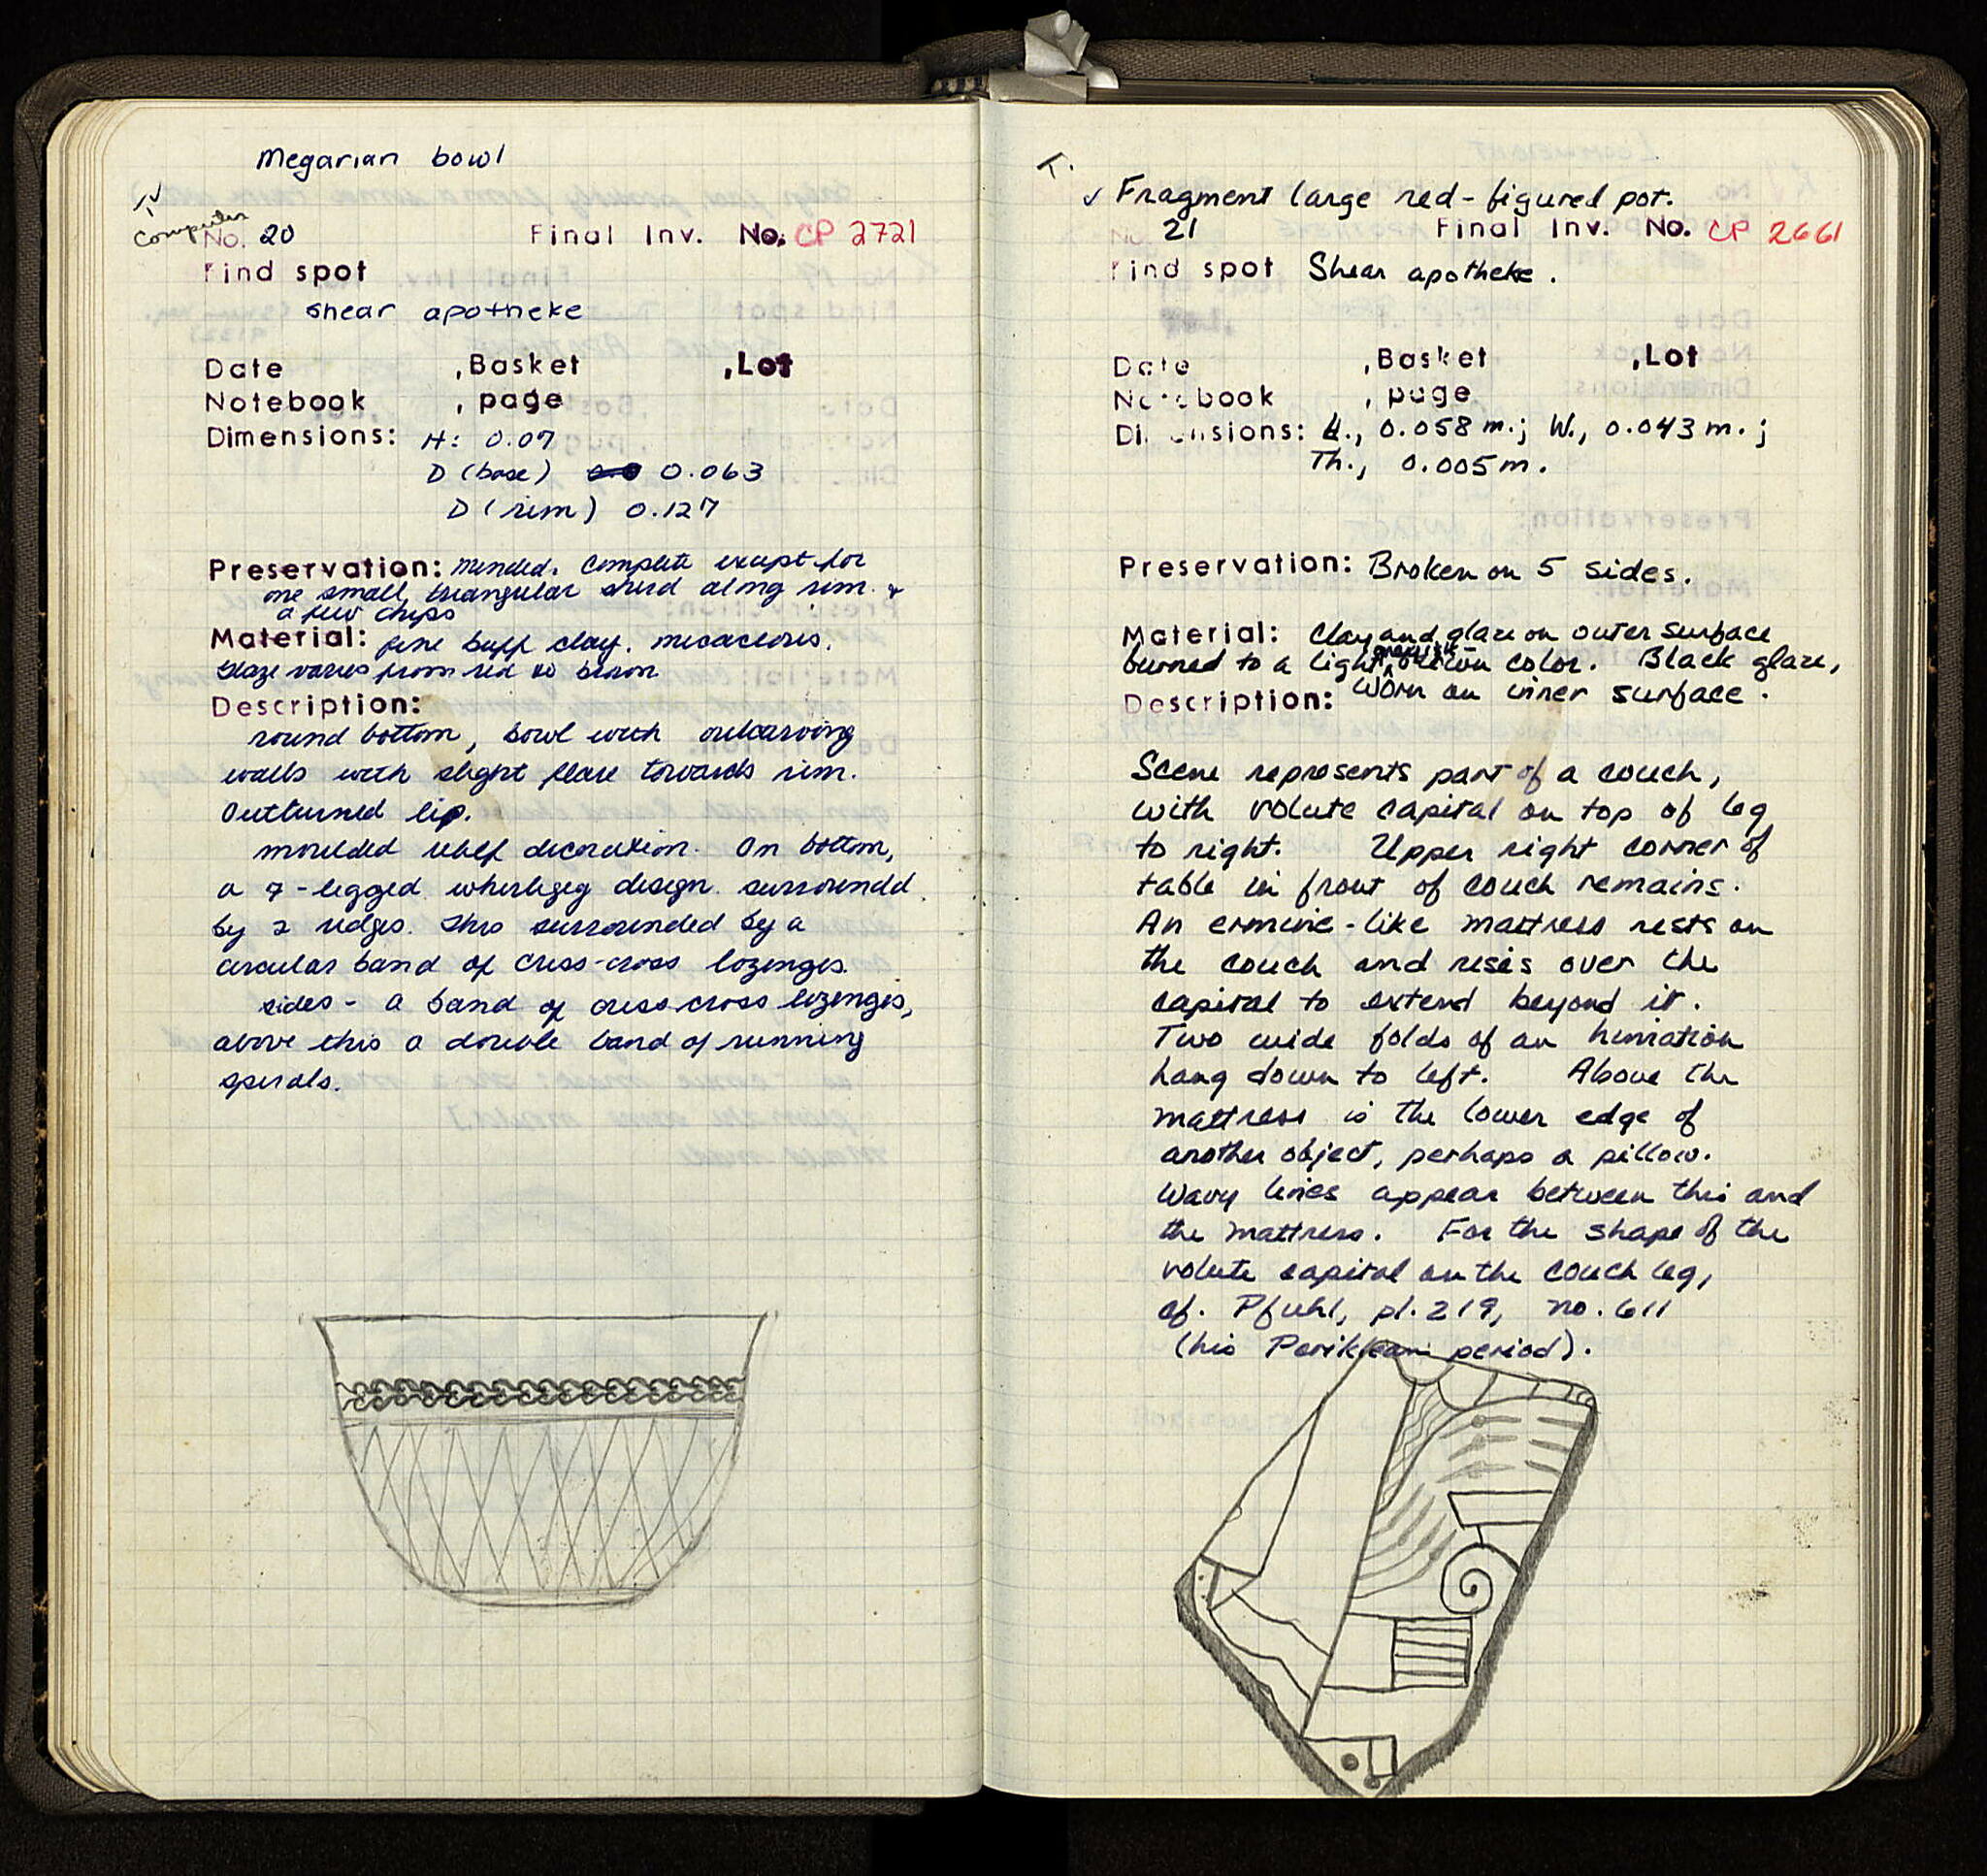 Megarian bowl
Computer
No. 20 Final Inv. No. CP 2721
Find spot
shear apotheke
Date , Basket , Lot
Notebook , page
Dimensions: H: 0.07
D (base) 0.063
D (rim) 0.127
Preservation: mended. Complete except for
one small, triangular sherd along rim &
a few chips
Material: fine buff clay. micaceous.
Glaze varies from red to brown
Description:
round bottom, bowl with outcurving
walls with slight flare towards rim.
Outturned lip.
moulded relief decoration. On bottom,
a 7-legged whirligig design surroundd
by 2 ridges. This surrounded by a
circular band of criss-cross lozenges.
sides - a band of criss-cross lozenges,
above this a double band of running
spirals.
T.
✓ Fragment large red-figured pot.
No. 21 Final Inv. No. CP 2661
Find spot Shear apotheke.
Date , Basket , Lot
Notebook , page
Dimensions: H., 0.058 m.; W., 0.043 m.;
Th., 0.005 m.
Preservation: Broken on 5 sides.
Material: Clay and glaze on outer surface
burned to a light greyish-brown color. Black glaze,
Description: worn on inner surface.
Scene represents part of a couch,
with volute capital on top of leg
to right. Upper right corner of
table in front of couch remains.
An ermine-like mattress rests on
the couch and rises over the
capital to extend beyond it.
Two wide folds of an himation
hang down to left. Above the
mattress is the lower edge of
another object, perhaps a pillow.
Wavy lines appear between this and
the mattress. For the shape of the
volute capital on the couch leg,
cf. Pfuhl, pl. 219, no. 611
(his Periklean period).